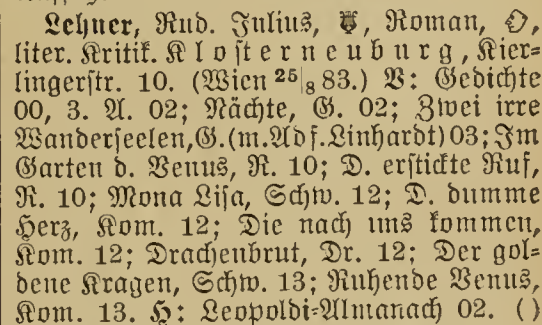 Lehner, Rud. Julius, Roman,
liter. Kritik. Klosterneuburg, Kier=
lingerstr. 10. (Wien 25|8 83.) V: Gedichte
00, 3. A. 02; Nächte, G. 02; Zwei irre
Wanderseelen, G. (m. Adf. Linhardt) 03; Im
Garten d. Venus, R. 10; D. erstickte Ruf,
R. 10; Mona Lisa, Schw. 12; D. dumme
Herz, Kom. 12; Die nach uns kommen,
Kom. 12; Drachenbrut, Dr. 12; Der gol=
dene Kragen, Schw. 13; Ruhende Venus,
Kom. 13. H: Leopoldi=Almanach 02. ( )